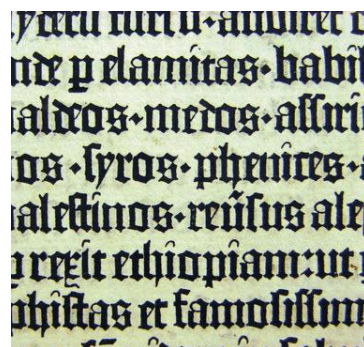 audiret
nde ꝑ elamitas · babil
aldeos · medos · assiri
os · syros · phenices ·
alestinos · reṽsus ale
ꝑrexit ethiopiam: ut
phistas et famosissim